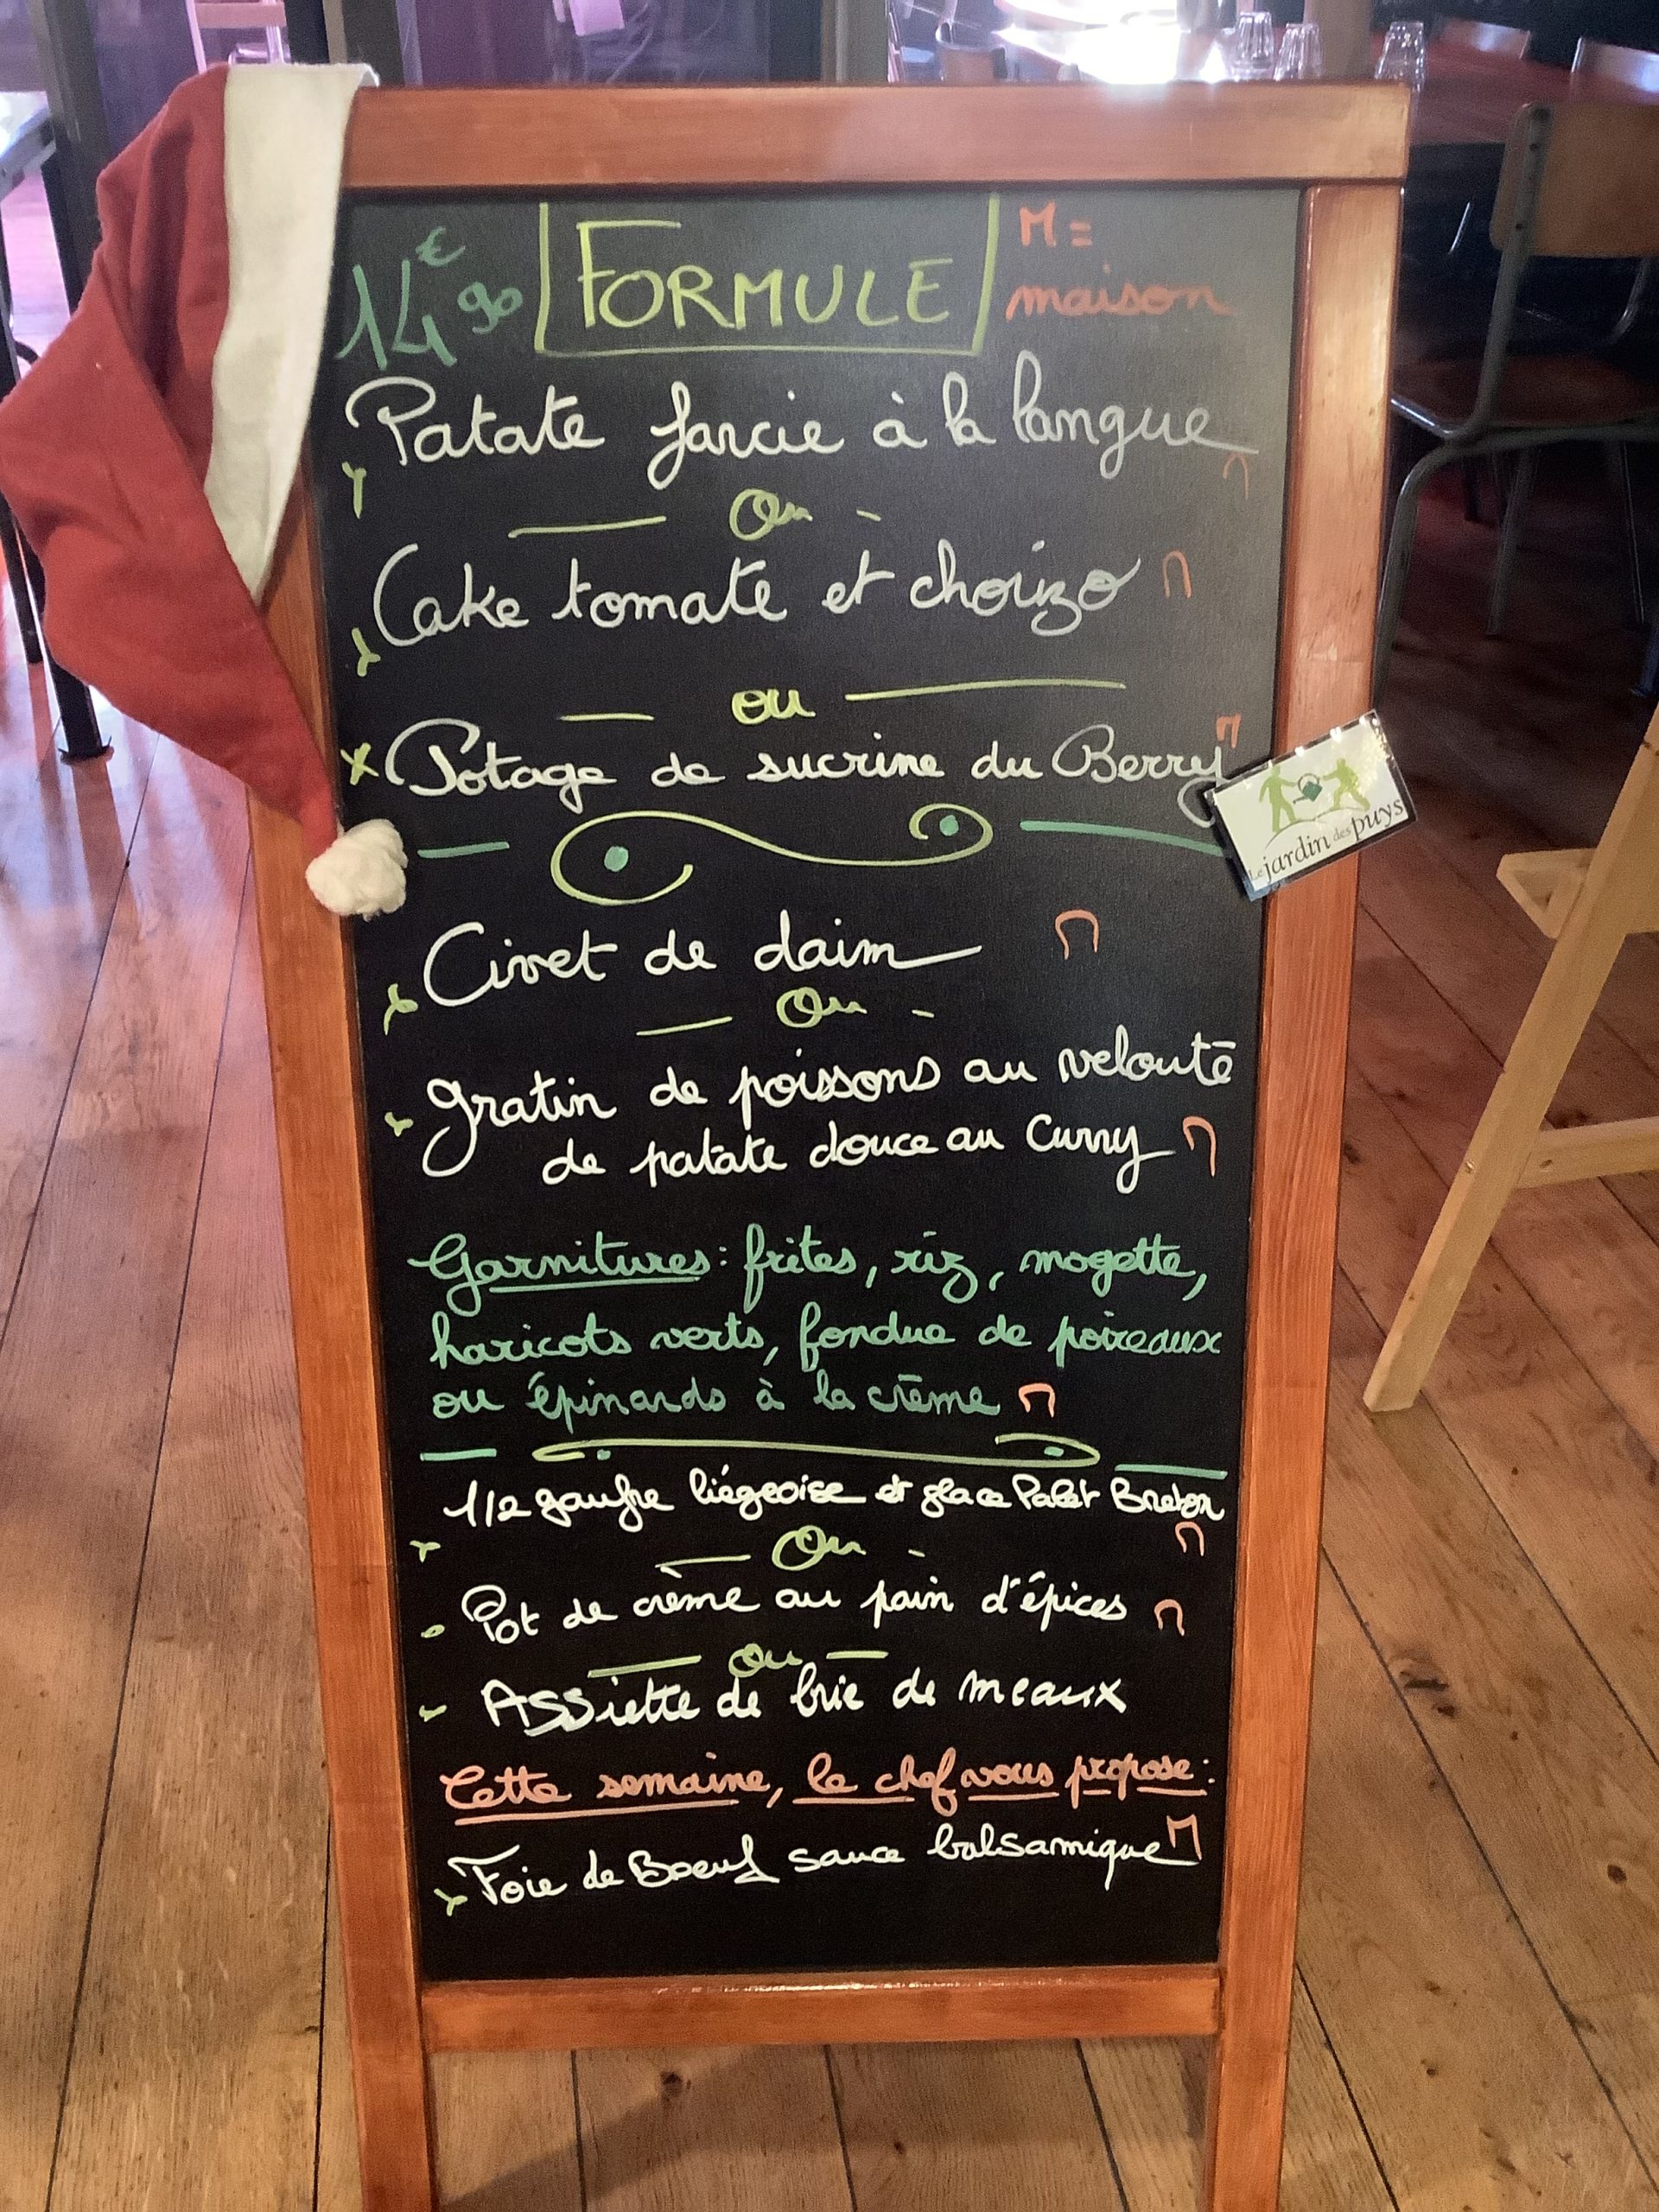 14€90 FORMULE M = maison
Patate farcie à la langue M
Ou
Cake tomate et chorizo M
ou
Potage de sucrine du Berry M
Le jardin des puys
Civet de daim M
Ou
Gratin de poissons au velouté
de patate douce au Curry M
Garnitures : frites, riz, mogette,
haricots verts, fondue de poireaux
ou épinards à la crème M
1/2 gaufre liégeoise et glace Palet Breton
M
Ou
Pot de crème au pain d'épices M
Ou
Assiette de brie de meaux
Cette semaine, le chef vous propose :
Foie de Boeuf sauce balsamique M